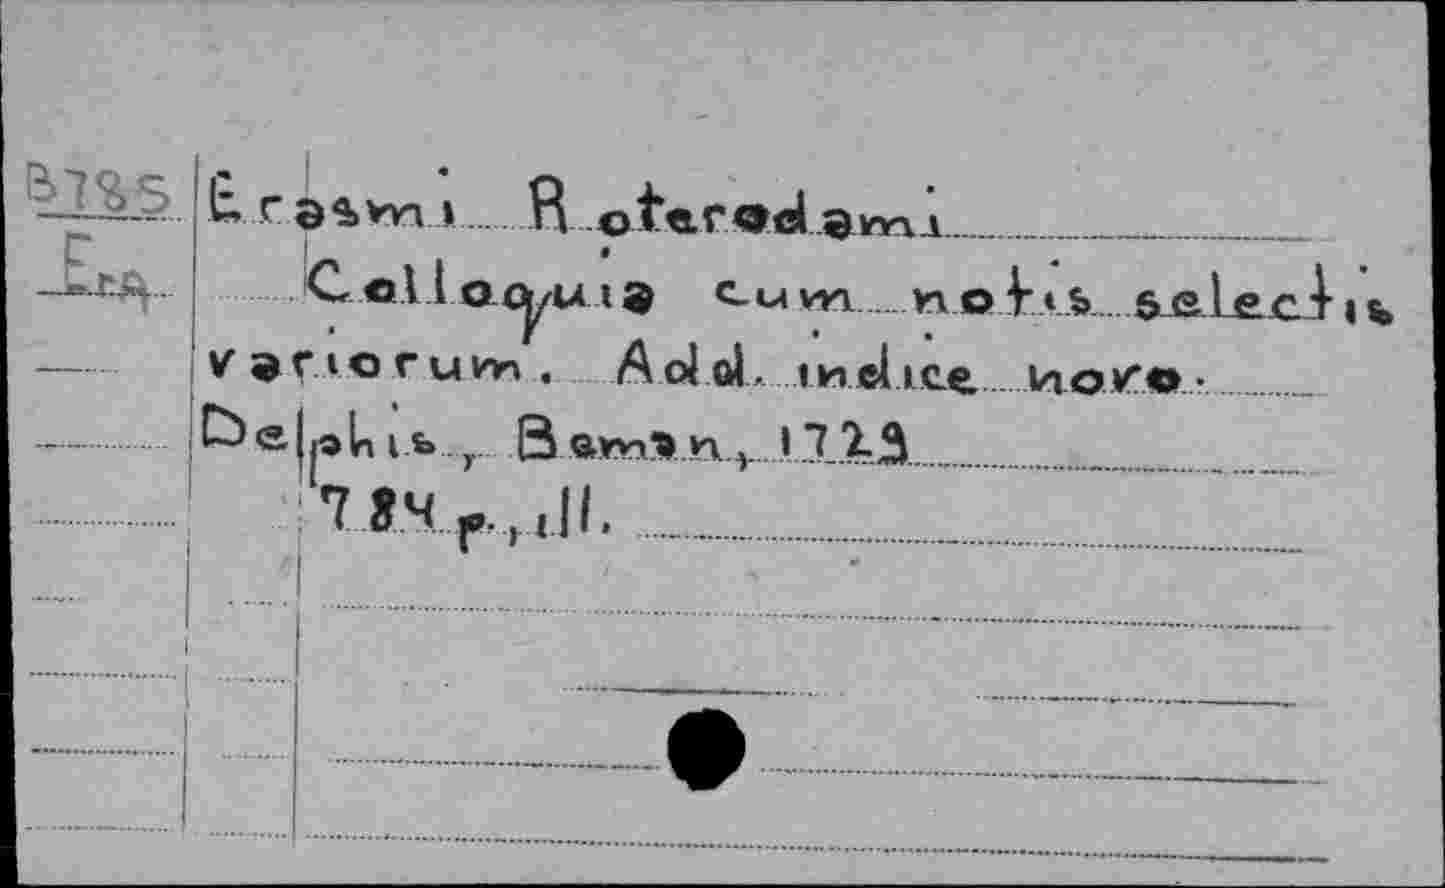 B785 Erasmi Roterodami
Era Colloquia cum notis selectis
variorum. Add. indice novo.
Delphis, Beman, 1729
784 p., ill.